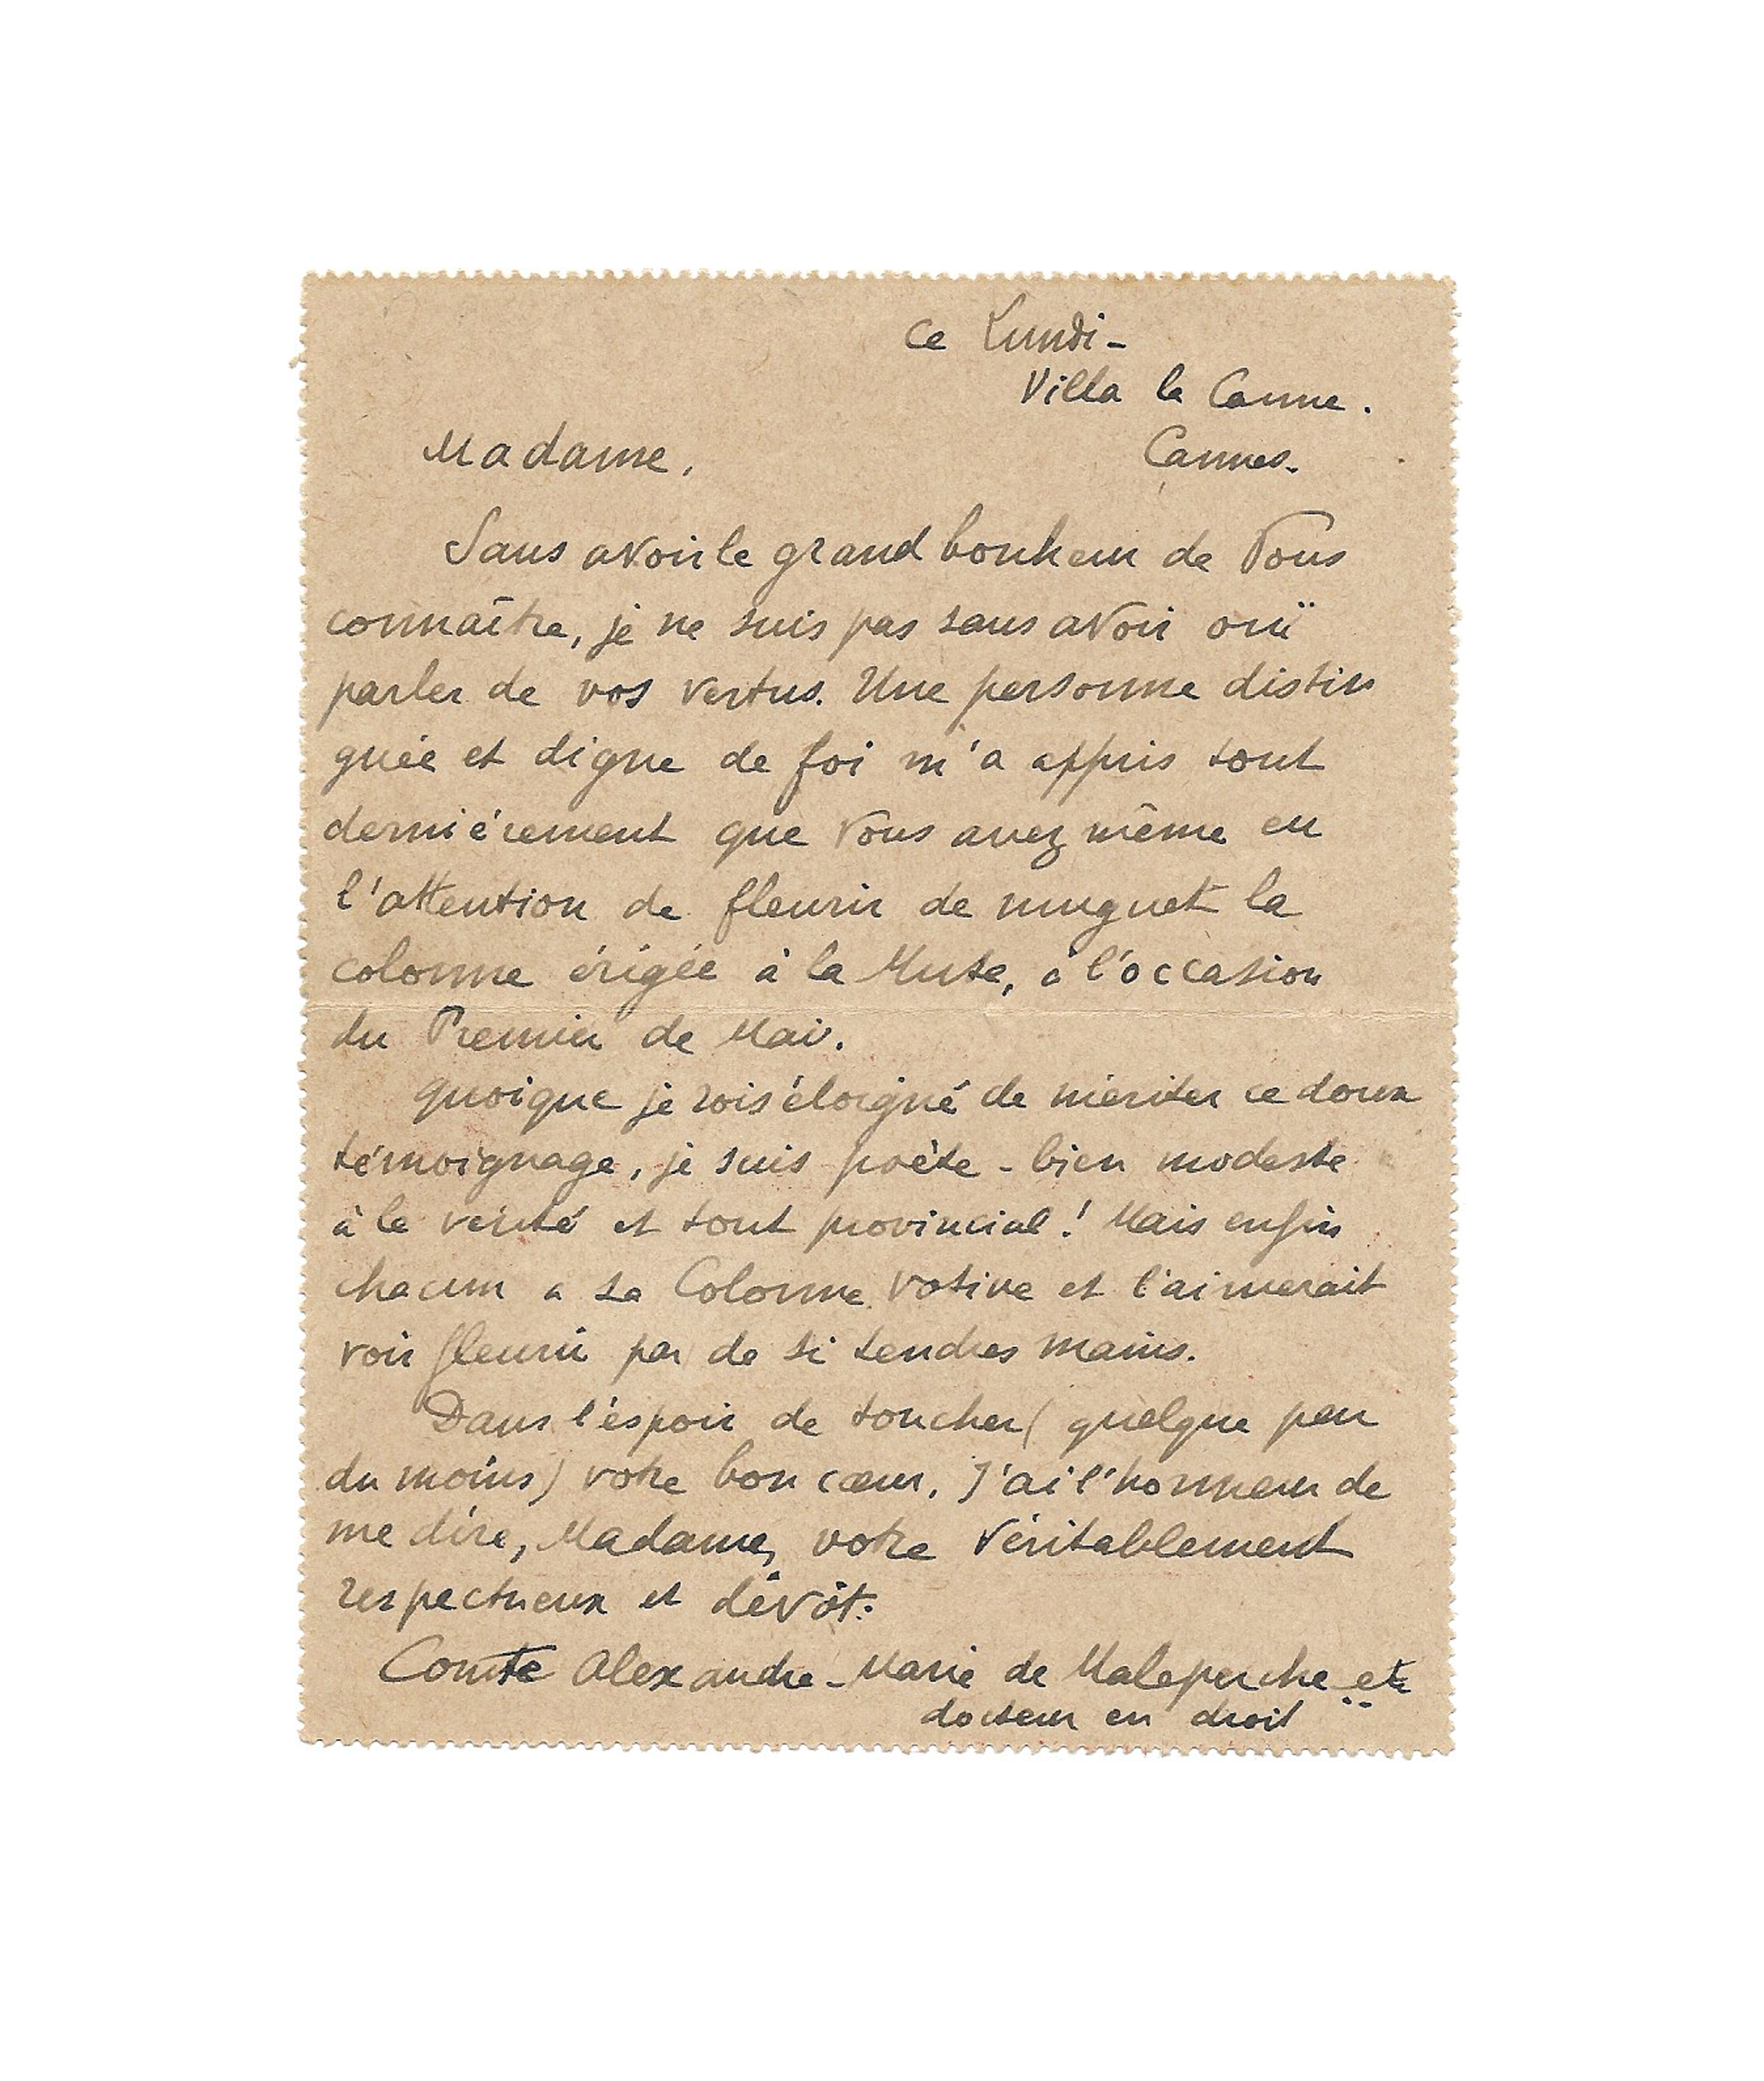 ce Lundi -
Villa la Canne.
Madame, Cannes.
Sans avoir le grand bonheur de Vous
connaître, je ne suis pas sans avoir ouï
parler de vos vertus. Une personne distin
guée et digne de foi m'a appris tout
derniérement que Vous avez même eu
l'attention de fleurir de muguet la
colonne érigée à la Muse, à l'occasion
du Premier de Mai.
quoique je sois éloigné de mériter ce doux
témoignage, je suis poète - bien modeste
à la vérité et tout provincial! Mais enfin
chacun a sa Colonne votive et l'aimerait
voir fleurir par de si tendres mains.
Dans l'espoir de toucher (quelque peu
du moins) votre bon cœur, J'ai l'honneur de
me dire, Madame, votre véritablement
respectueux et dévôt:
Comte Alexandre-Marie de Maleperche etc
docteur en droit